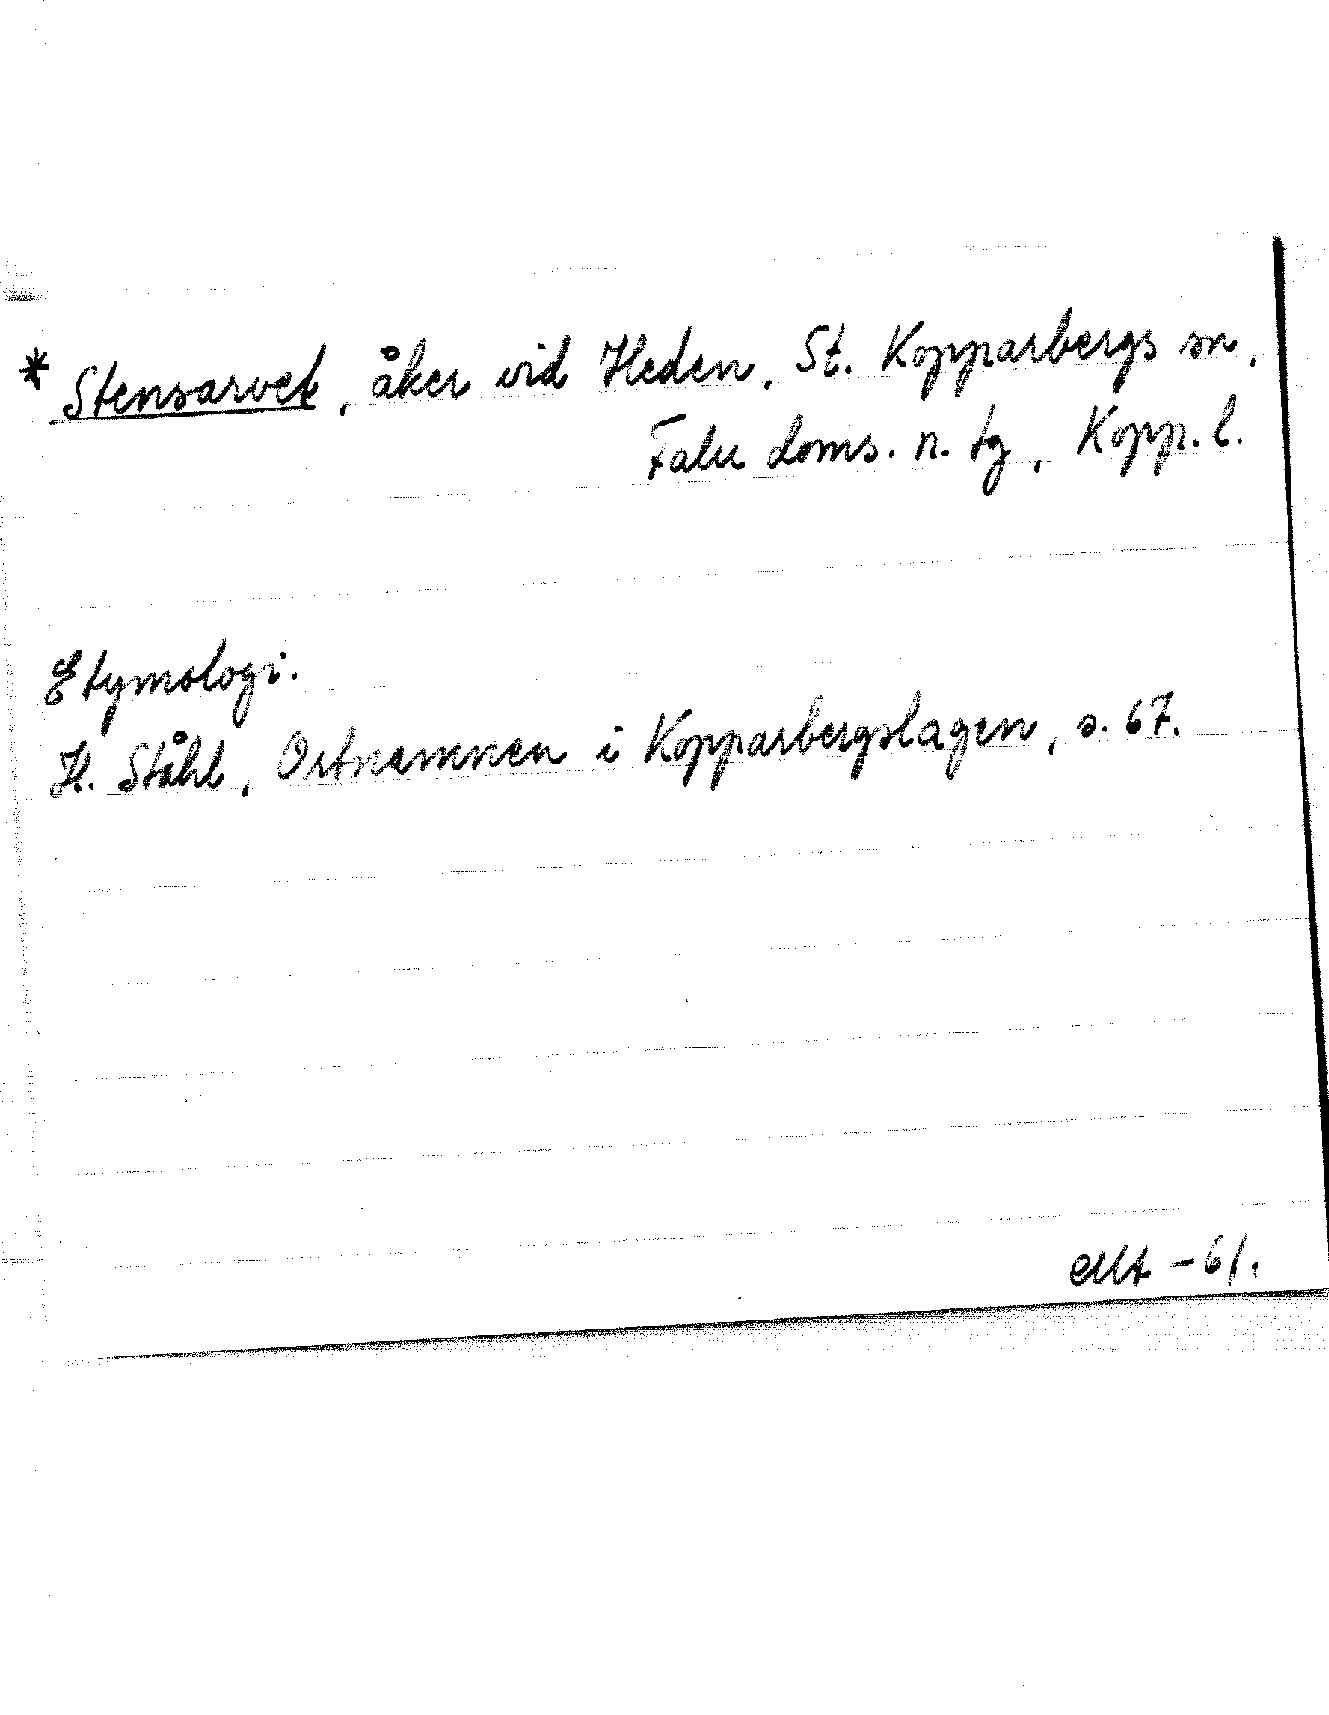 * Stensarvet, åker vid Heden, St. Kopparbergs sn,
Falu doms. n. tg, Kopp. l.
Etymologi.
H. Ståhl, Ortnamnen i Kopparbergslagen, s. 67.
-61.